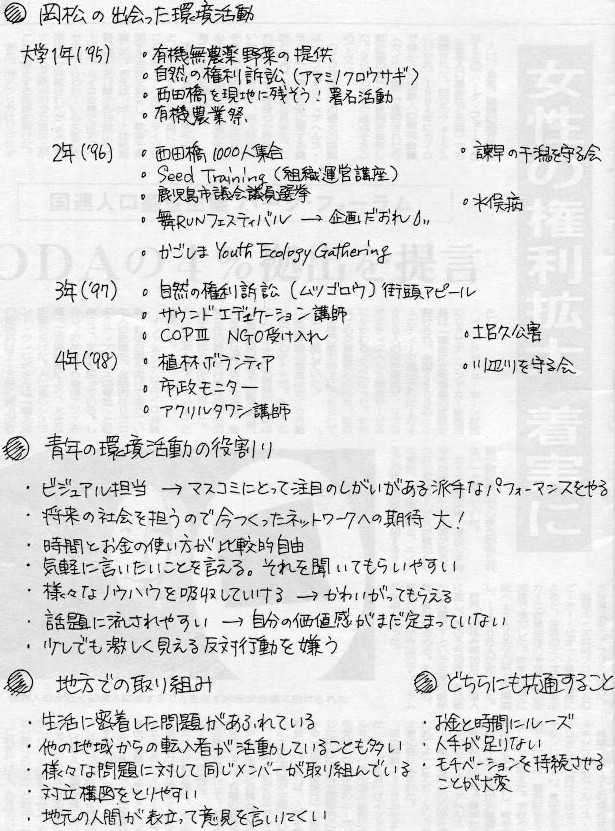 岡松の出会った環境活動
大学1年('95)
・有機無農薬野菜の提供
・自然の権利訴訟(アマミノクロウサギ)
・西田橋を現地に残そう!署名活動
・有機農業祭
2年('96)
・西田橋1000人集合
・諫早の干潟を守る会
・Seed Training(組織運営講座)
・鹿児島市議会議員選挙
・水俣病
・舞RUNフェスティバル → 企画だおれ
・かごしま Youth Ecology Gathering
3年('97)
・自然の権利訴訟(ムツゴロウ)街頭アピール
・サウンドエデュケーション講師
・COPⅢ NGO受け入れ
・土呂久公害
4年('98)
・植林ボランティア
・川辺川を守る会
・市政モニター
・アクリルタワシ講師
青年の環境活動の役割り
・ビジュアル担当 → マスコミにとって注目のしがいがある派手なパフォーマンスをやる
・将来の社会を担うので今つくったネットワークへの期待 大!
・時間とお金の使い方が比較的自由
・気軽に言いたいことを言える。それを聞いてもらいやすい
・様々なノウハウを吸収していける → かわいがってもらえる
・話題に流されやすい → 自分の価値感がまだ定まっていない
・少しでも激しく見える反対行動を嫌う
地方での取り組み
・生活に密着した問題があふれている
・他の地域からの転入者が活動していることも多い
・様々な問題に対して同じメンバーが取り組んでいる
・対立構図をとりやすい
・地元の人間が表立って意見を言いにくい
どちらにも共通すること
・お金と時間にルーズ
・人手が足りない
・モチベーションを持続させる
ことが大変
女性の権利拡大 着実に
国連人口
ODAの
を提言